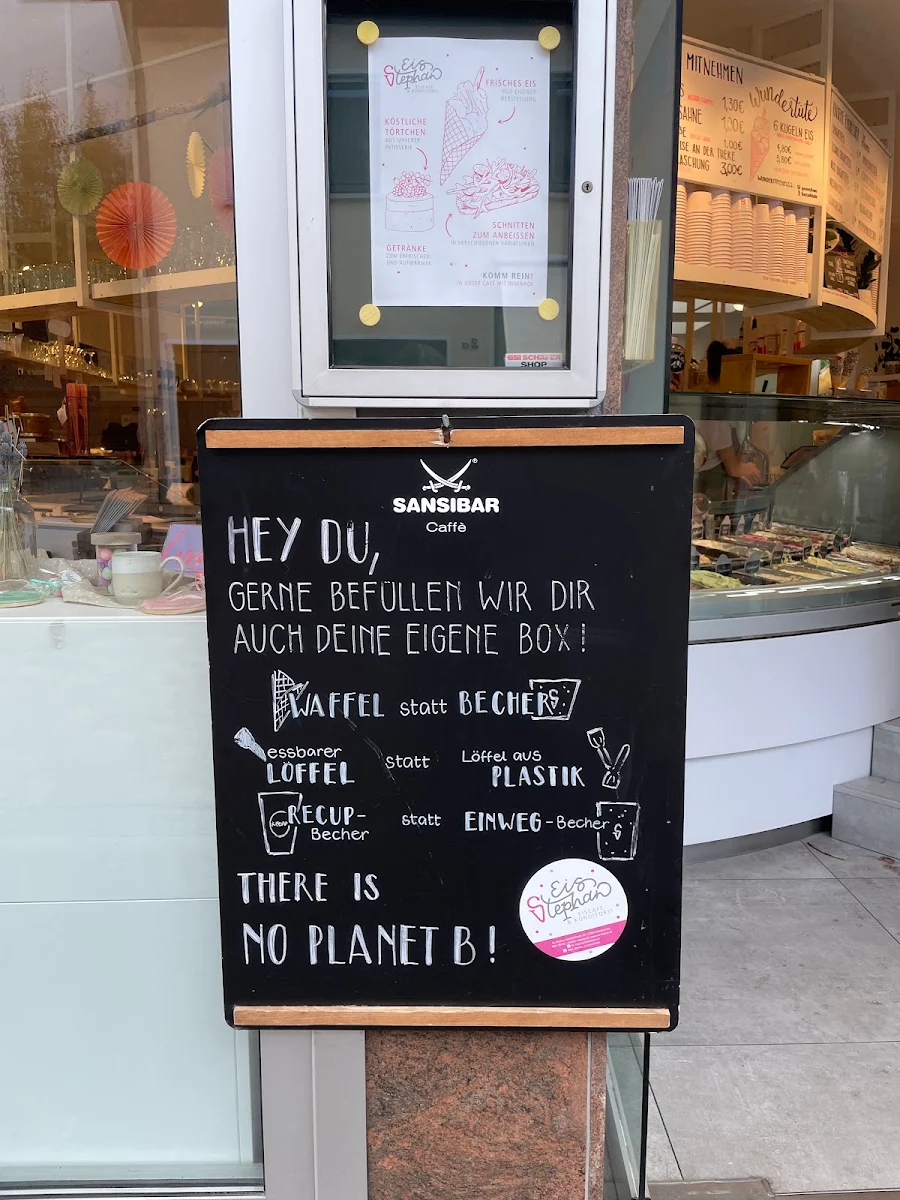 Eis
Stephan
EISCAFÉ
& KONDITOREI
FRISCHES EIS
AUS EIGENER
HERSTELLUNG
KÖSTLICHE
TÖRTCHEN
AUS UNSERER
PATISSERIE
SCHNITTEN
ZUM ANBEISSEN
IN VERSCHIEDENEN VARIATIONEN
GETRÄNKE
ZUM ERFRISCHEN
UND AUFWÄRMEN
KOMM REIN!
IN UNSER CAFÉ MIT INNENHOF
SSI SCHÄFER
SHOP
MITNEHMEN
1,30€
SAHNE 1,30€
1,00€
AN DER THEKE
3,00€
Wundertüte
6 KUGELN EIS
4,80€
5,80€
SANSIBAR
Caffè
HEY DU,
GERNE BEFÜLLEN WIR DIR
AUCH DEINE EIGENE BOX!
WAFFEL statt BECHER
essbarer LÖFFEL statt Löffel aus PLASTIK
RECUP-Becher statt EINWEG-Becher
THERE IS
NO PLANET B!
Eis
Stephan
EISCAFÉ
& KONDITOREI